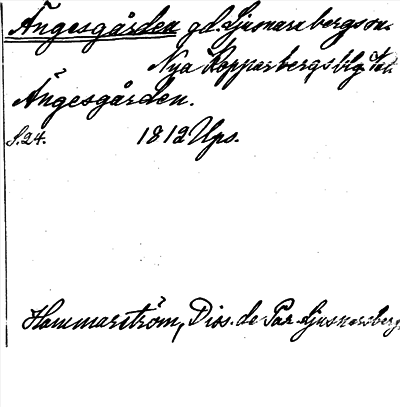 Ängesgården gd. Ljusnarsbergs sn.
Nya Kopparbergs blg
Ängesgården.
S. 24. 1812 Ups.
Hammarström, Diss. de Par. Ljusnarsberg